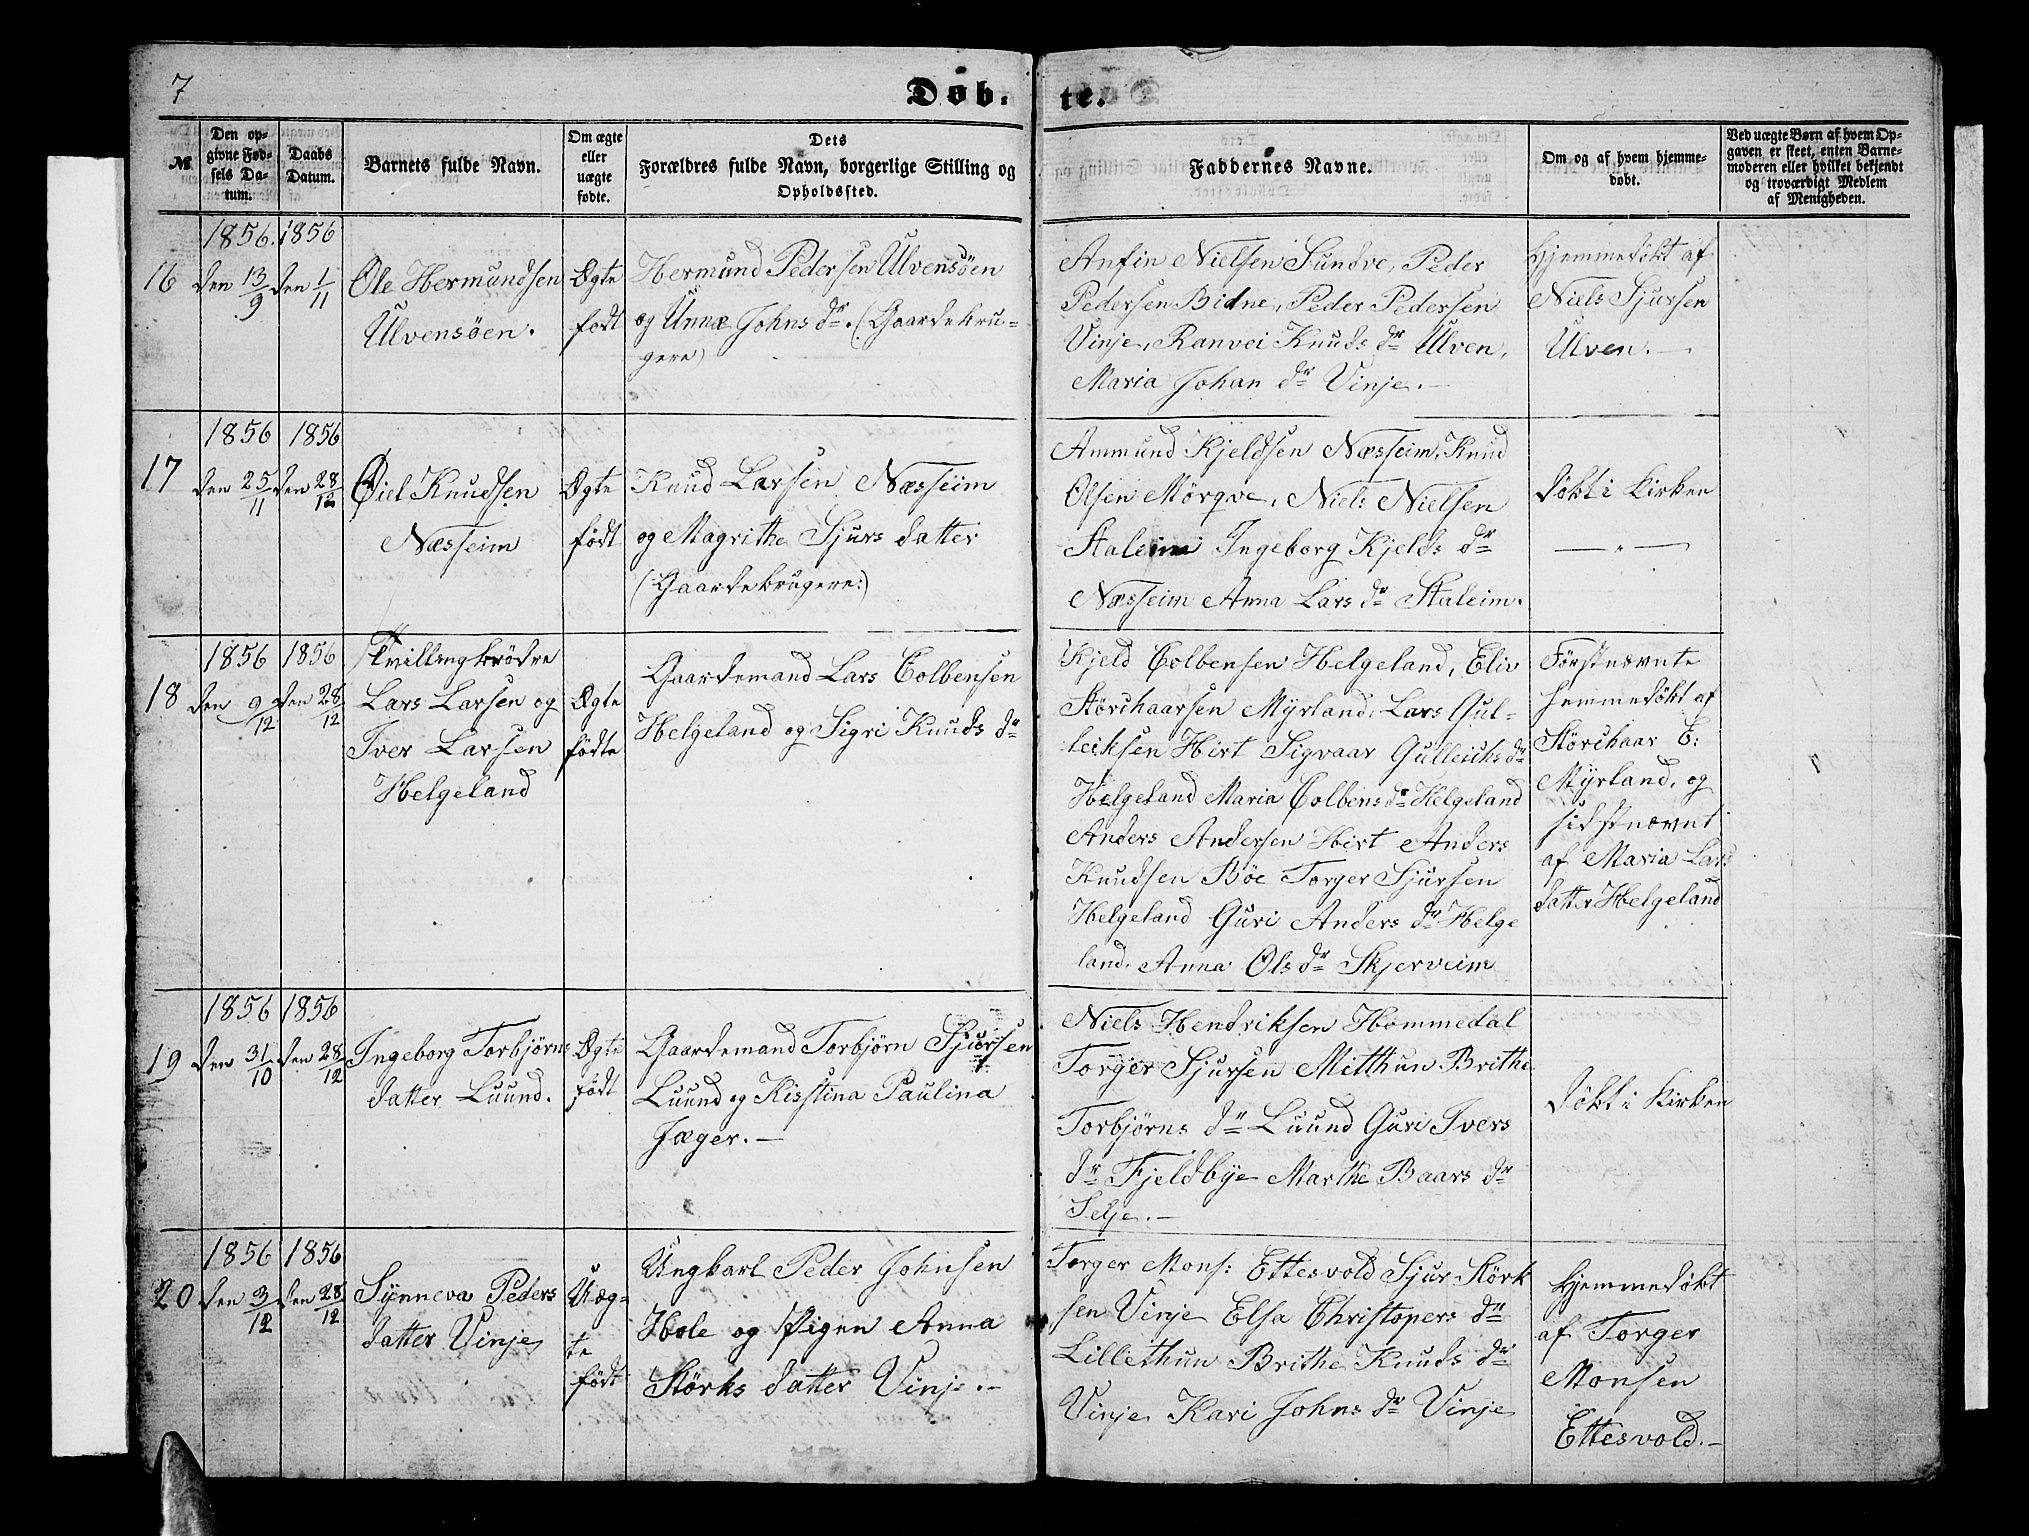 7
Døb-
te.
№
Den op-
givne Fød-
sels Da-
tum.
Daabs
Datum.
Barnets fulde Navn.
Om ægte
eller
uægte
fødte.
Dets
Forældres fulde Navn, borgerlige Stilling og
Opholdssted.
Faddernes Navne.
Om og af hvem hjemme-
døbt.
Ved uægte Børn af hvem Op-
gaven er skeet, enten Barne-
moderen eller hvilket bekjendt
og troværdigt Medlem
af Menigheden.
16
1856.
den 13/9
1856
den 1/11
Ole Hermundsen
Ulvensöen.
Ægte
fodt
Hermund Pedersen Ulvensöen
og Unnæ Johns dr. (Gaardebru-
gere)
Anfin Nielsen Sundve, Peder
Pedersen Bidne, Peder Pedersen
Vinje, Ranvei Knuds dr Ulven,
Maria Johan dr Vinje.—
Hjemmedöbt af
Niels Sjursen
Ulven.—
17
1856
den 25/11
1856
den 28/12
Öiel Knudsen
Næsseim
Ægte
födt
Knud Larsen Næsseim
og Magrithe Sjurs datter
(Gaardebrugere:)
Ammund Kjeldsen Næsseim, Knud
Olsen Mörqve, Niels Nielsen
Staleim Ingeborg Kjelds dr
Næsseim Anna Lars dr Staleim.
döbt i Kirken
— " —
18
1856
den 9/12
1856
den 28/12
Tvillingbrödre
Lars Larsen og
Iver Larsen
Helgeland
Ægte
födte
Gaardemand Lars Colbensen
Helgeland og Sigri Knuds dr
Kjeld Colbensen Helgeland, Eliv
Störchaarsen Myrland, Lars Gul-
leiksen Hirt Sigvaar Gulleiks dr
Helgeland Maria Colbens dr Helgeland
Anders Andersen Hirt Anders
Knudsen Böe Torger Sjursen
Helgeland Guri Anders dr Helge
land. Anna Ols dr Skjerveim
Förstnævnte
hemmedöbt af
Störchaar E:
Myrland, og
sidstnævnt
af Maria Lars
datter Helgeland
19
1856
den 31/10
1856
den 28/12
Ingeborg Torbjörns
datter Luund.
Ægte
födt
Gaardemand Torbjörn Sjursen
Luund og Kistina Paulina
Jæger.—
Niels Hendriksen Hommedal
Torger Sjursen Mitthun Brithe
Torbjörns dr Luund Guri Ivers
dr Fjeldbye Marthe Baars dr
Selje.—
döbt i Kirken
20
1856
den 3/12
1856
den 28/12
Synneva Peders
datter Vinje
Uæg-
te
födt
Ungkarl Peder Johnsen
Hole og Pigen Anna
Störks datter Vinje.—
Torger Mons: Ettesvold Sjur Störk
sen Vinje Elsa Christopers dr
Lillethun Brithe Knuds dr
Vinje Kari Johns dr Vinje
Hjemmedöbt
af Torger
Monsen
Ettesvold.—